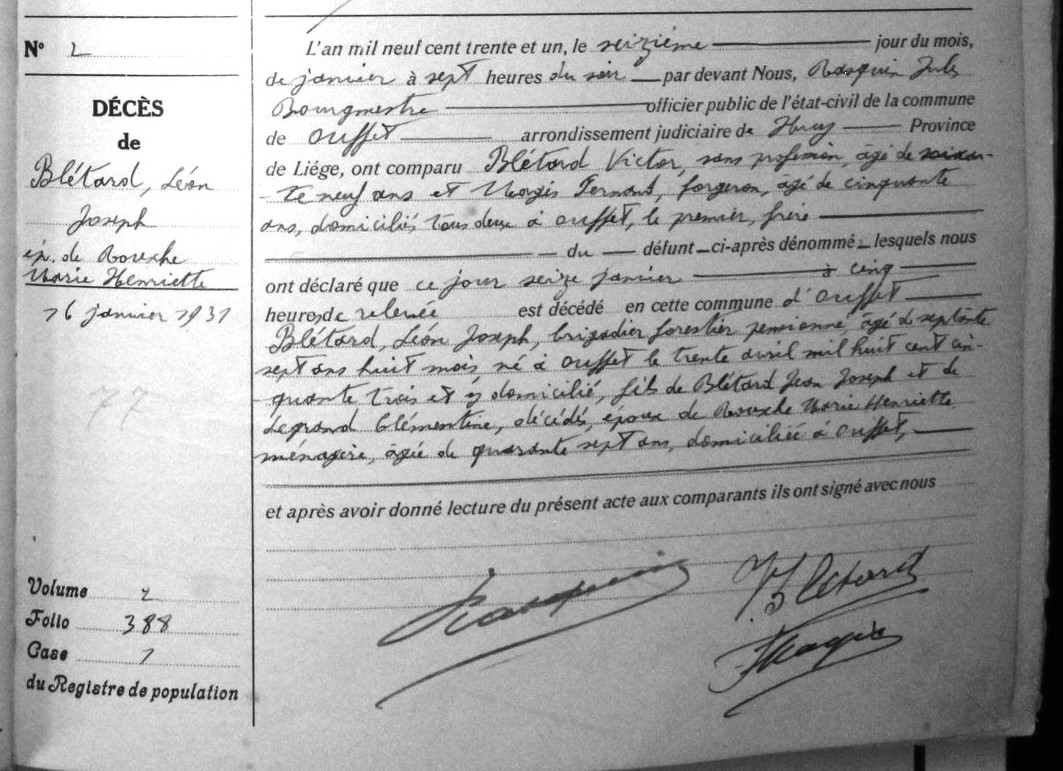 N° 2
DÉCÈS
de
Blétard, Léon
Joseph
ép. de Rouxhe
Marie Henriette
16 janvier 1931
77
Volume 2
Folio 388
Case 1
du Registre de population
L'an mil neuf cent trente et un, le seizième jour du mois,
de janvier à sept heures du soir par devant Nous, Rasquin Jules
Bourgmestre officier public de l'état-civil de la commune
de Ouffet arrondissement judiciaire de Huy Province
de Liége, ont comparu Blétard Victor, sans profession, âgé de soixan-
te neuf ans et Fernand, forgeron, âgé de cinquante
ans, domiciliés tous deux à Ouffet, le premier, frère
du défunt ci-après dénommé lesquels nous
ont déclaré que ce jour seize janvier à cinq
heures de relevée est décédé en cette commune d'Ouffet
Blétard, Léon Joseph, brigadier forestier pensionné, âgé de septante
sept ans huit mois né à Ouffet le trente avril mil huit cent cin-
quante trois et y domicilié, fils de Blétard Jean Joseph et de
Legrand Clémentine, décédés, époux de Rouxhe Marie Henriette
ménagère, âgée de quarante sept ans, domiciliée à Ouffet,
et après avoir donné lecture du présent acte aux comparants ils ont signé avec nous
Rasquin
V Blétard